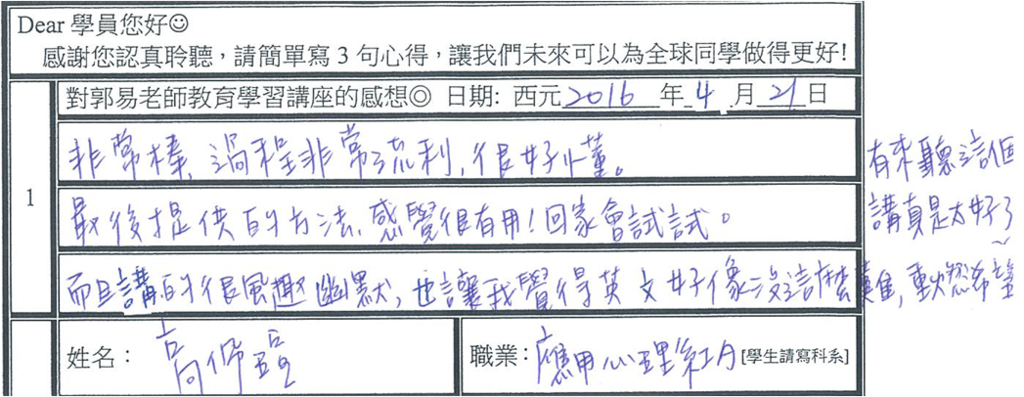 Dear 學員您好☺
感謝您認真聆聽，請簡單寫 3 句心得，讓我們未來可以為全球同學做得更好!
1
對郭易老師教育學習講座的感想◎ 日期: 西元2016年4月21日
非常棒，過程非常流利，很好懂。
最後提供的方法，感覺很有用！回家會試試。
而且講的很風趣幽默，也讓我覺得英文好像沒這麼難，重燃希望
有來聽這個
講真是太好了～
姓名：高佩
職業：應用心理系[學生請寫科系]